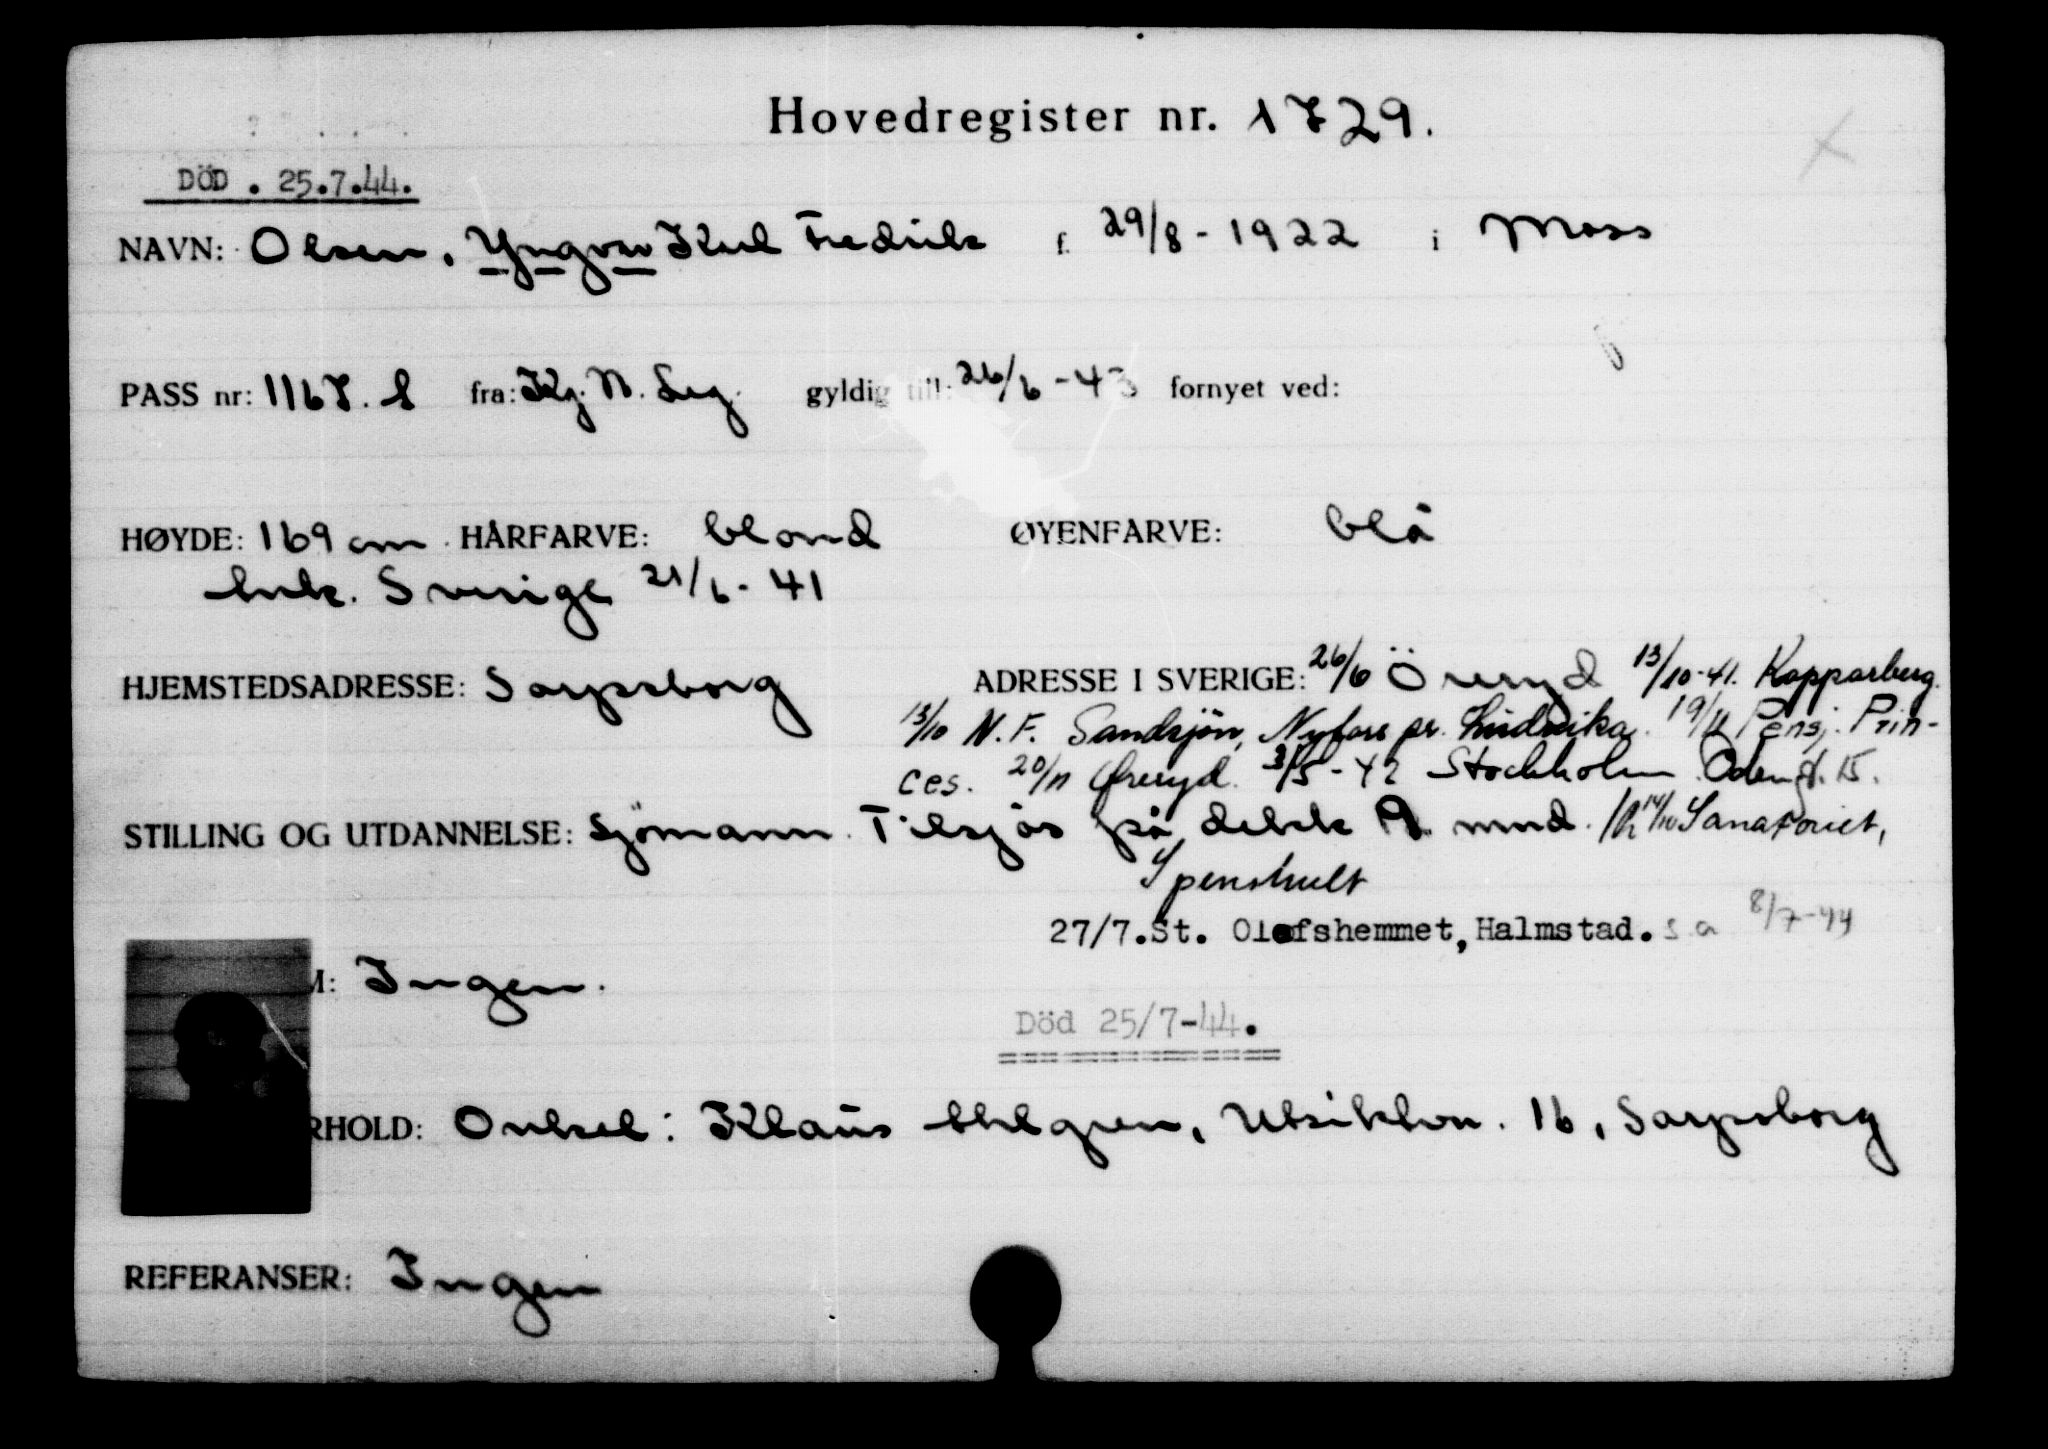 Hovedregister nr. 1729.
DÖD . 25.7.44.
NAVN: Olsen, Yngvar Karl Fredrik f. 29/8 - 1922 i Moss
PASS nr: 1167. S fra: Kg. N. Leg. gyldig till: 26/6 - 43 fornyet ved:
HØYDE: 169 cm HÅRFARVE: blond ØYENFARVE: blå
Ink. Sverige 21/6 - 41
HJEMSTEDSADRESSE: Sarpsborg ADRESSE I SVERIGE: 26/6 Öreryd 13/10-41. Kopparberg.
13/10 N.F. Sandsjön, Nyfors pr. Ludvika. 19/11 Pensj. Prin-
ces. 20/11 Øreryd. 3/5 - 42 Stockholm Odeng. 15.
STILLING OG UTDANNELSE: Sjömann. Tilsjøs på dekk 9 mnd. 14/10 Sanatoriet,
Spenshult
27/7.St. Olofshemmet, Halmstad. s a 8/7-44
M: Ingen.
Död 25/7-44.
RHOLD: Onkel: Klaus Ahlgren, Utsiktvn. 16, Sarpsborg
REFERANSER: Ingen